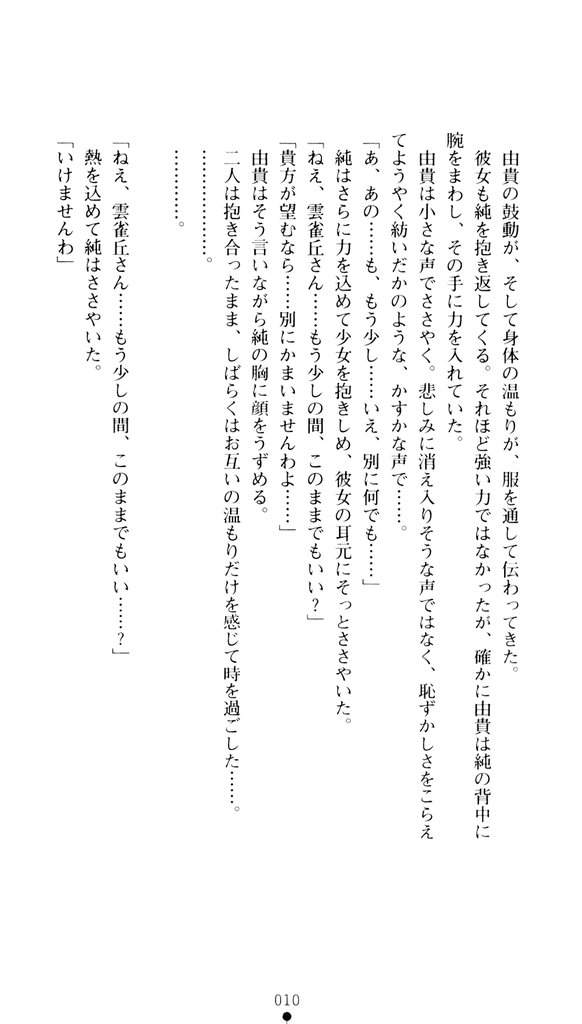 由貴の鼓動が、そして身体の温もりが、服を通して伝わってきた。
彼女も純を抱き返してくる。それほど強い力ではなかったが、確かに由貴は純の背中に
腕をまわし、その手に力を入れていた。
由貴は小さな声でささやく。悲しみに消え入りそうな声ではなく、恥ずかしさをこらえ
てようやく紡いだかのような、かすかな声で……。
「あ、あの……も、もう少し……いえ、別に何でも……」
純はさらに力を込めて少女を抱きしめ、彼女の耳元にそっとささやいた。
「ねえ、雲雀丘さん……もう少しの間、このままでもいい？」
「貴方が望むなら……別にかまいませんわよ……」
由貴はそう言いながら純の胸に顔をうずめる。
二人は抱き合ったまま、しばらくはお互いの温もりだけを感じて時を過ごした……。
………………。
…………。
「ねえ、雲雀丘さん……もう少しの間、このままでもいい……？」
熱を込めて純はささやいた。
「いけませんわ」
010